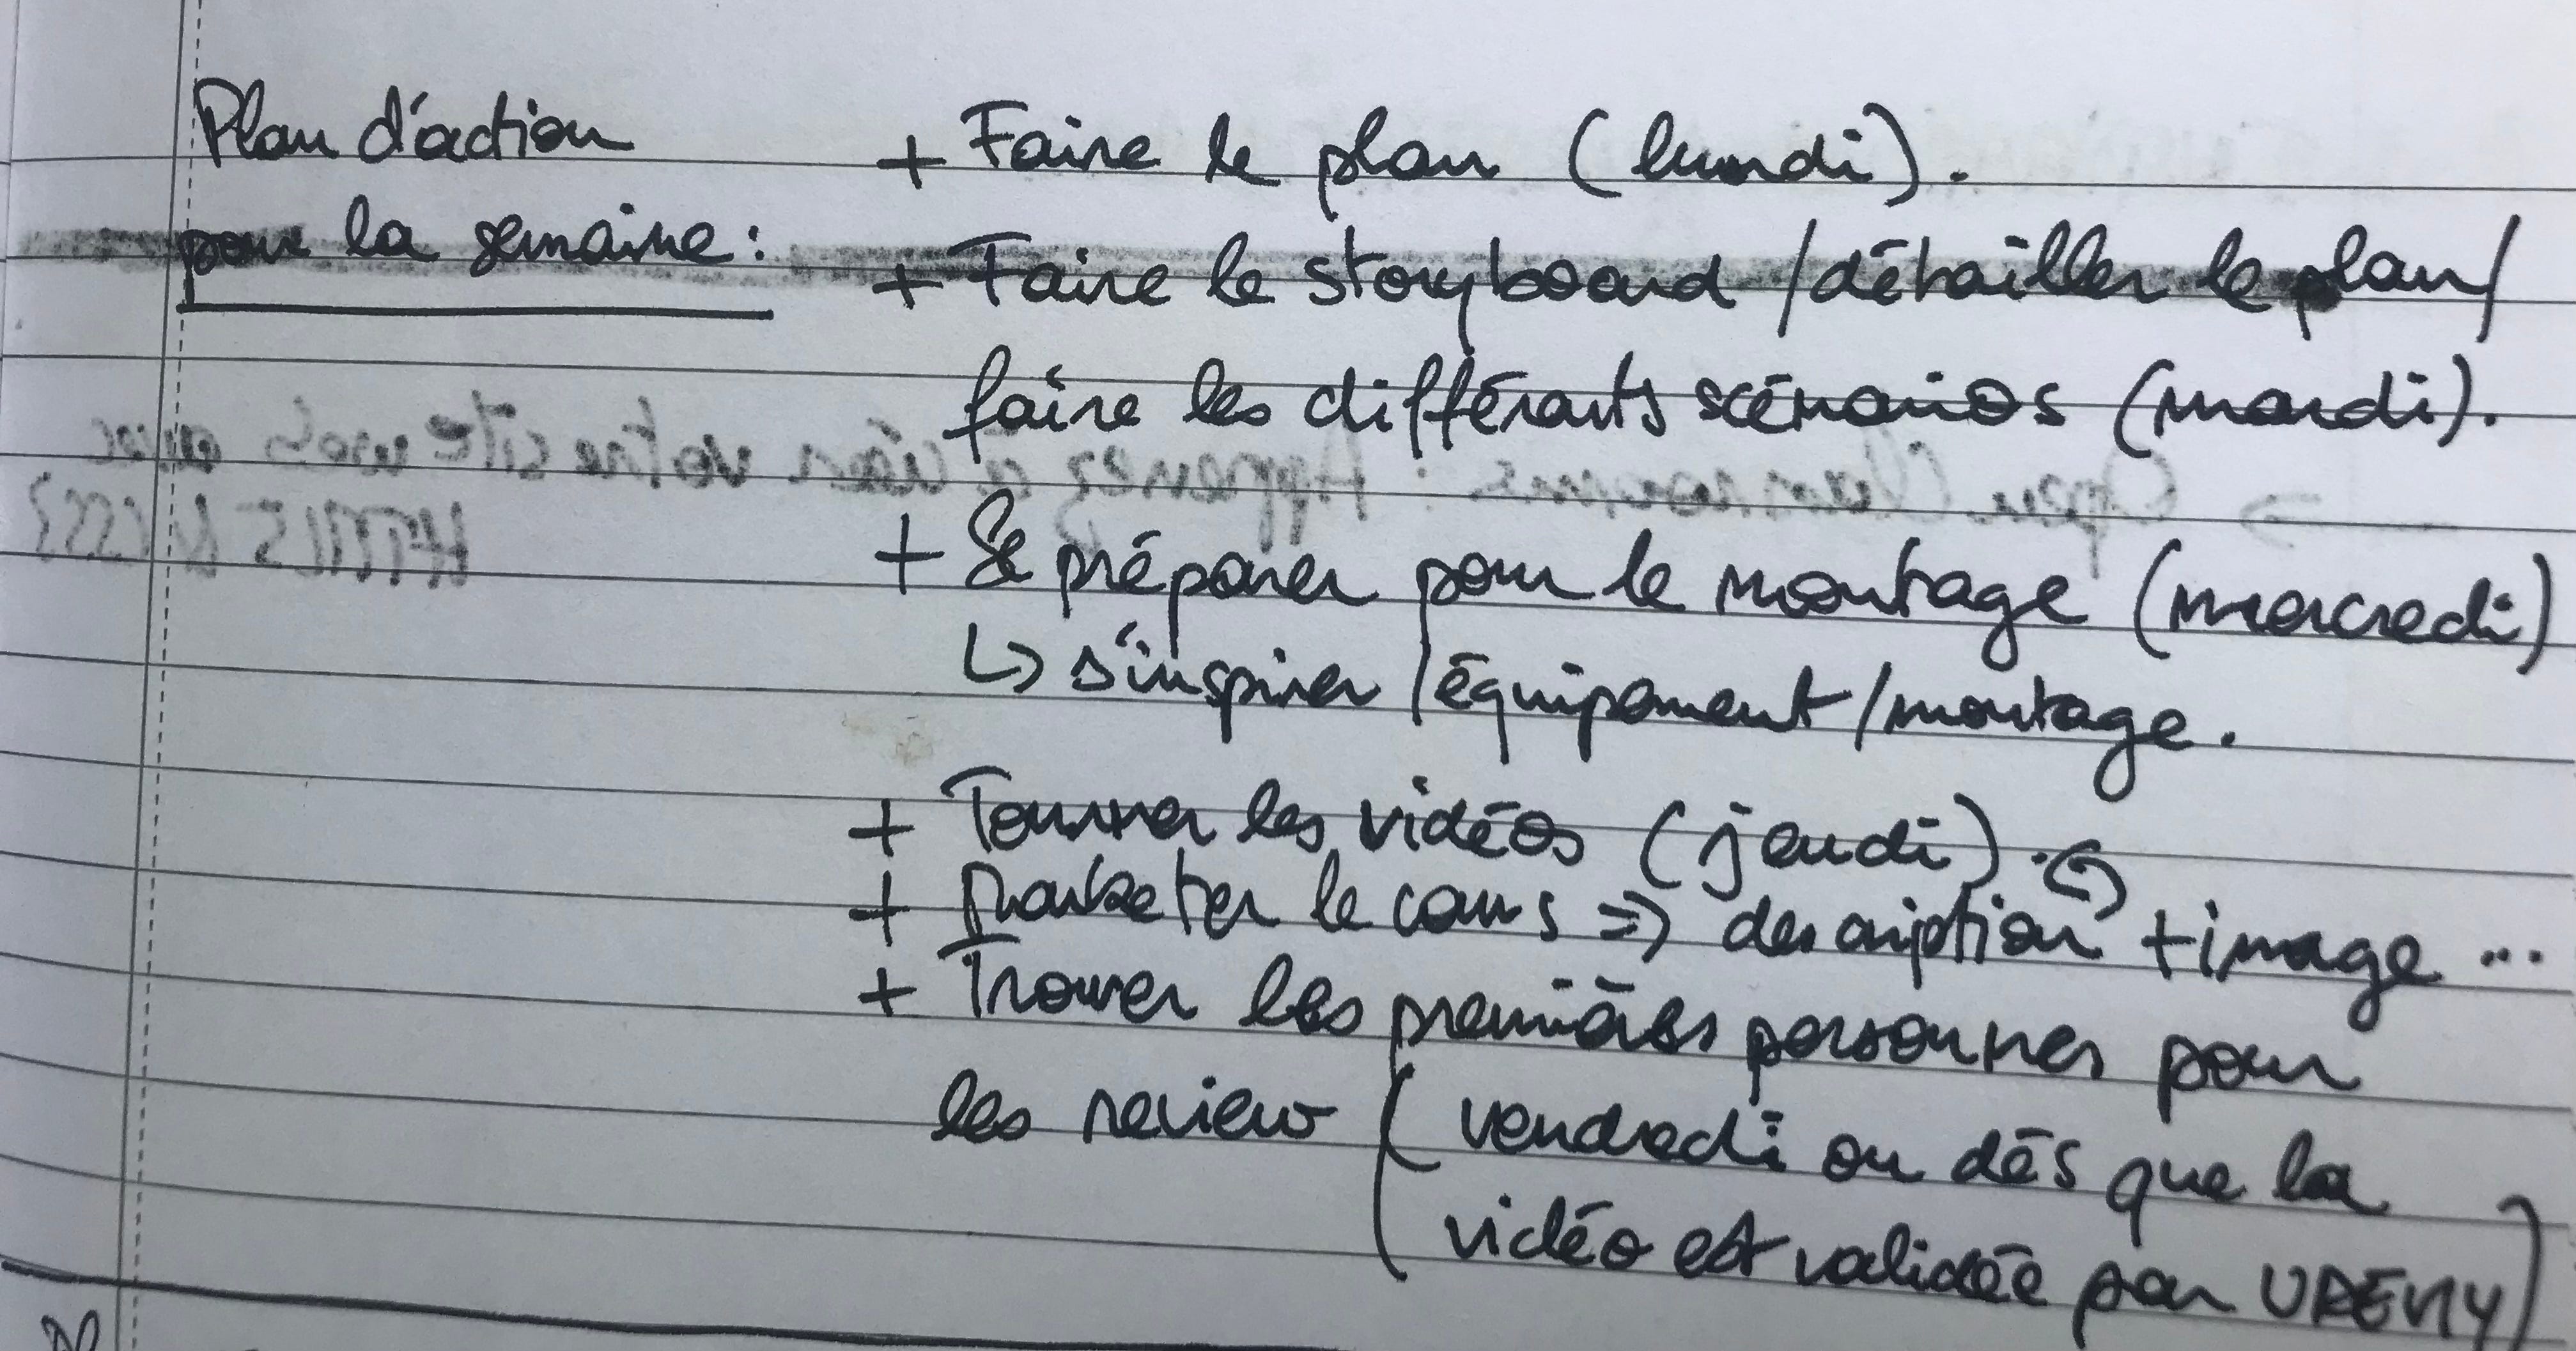 Plan d'action
pour la semaine :
+ Faire le plan (lundi).
+ Faire le storyboard / détailler le plan /
faire les différents scénarios (mardi).
+ Se préparer pour le montage (mercredi)
↳ s'inspirer / équipement / montage.
+ Tourner les vidéos (jeudi).
+ Marketer le cours => description + image ...
+ Trouver les premières personnes pour
les review (vendredi ou dès que la
vidéo est validée par UDEMY)